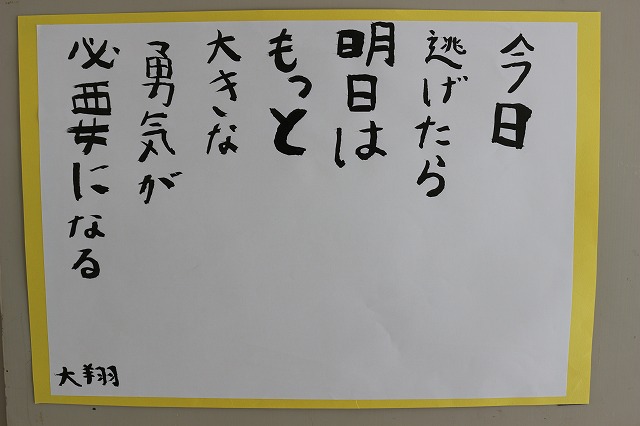 今日
逃げたら
明日は
もっと
大きな
勇気が
必要になる
大翔